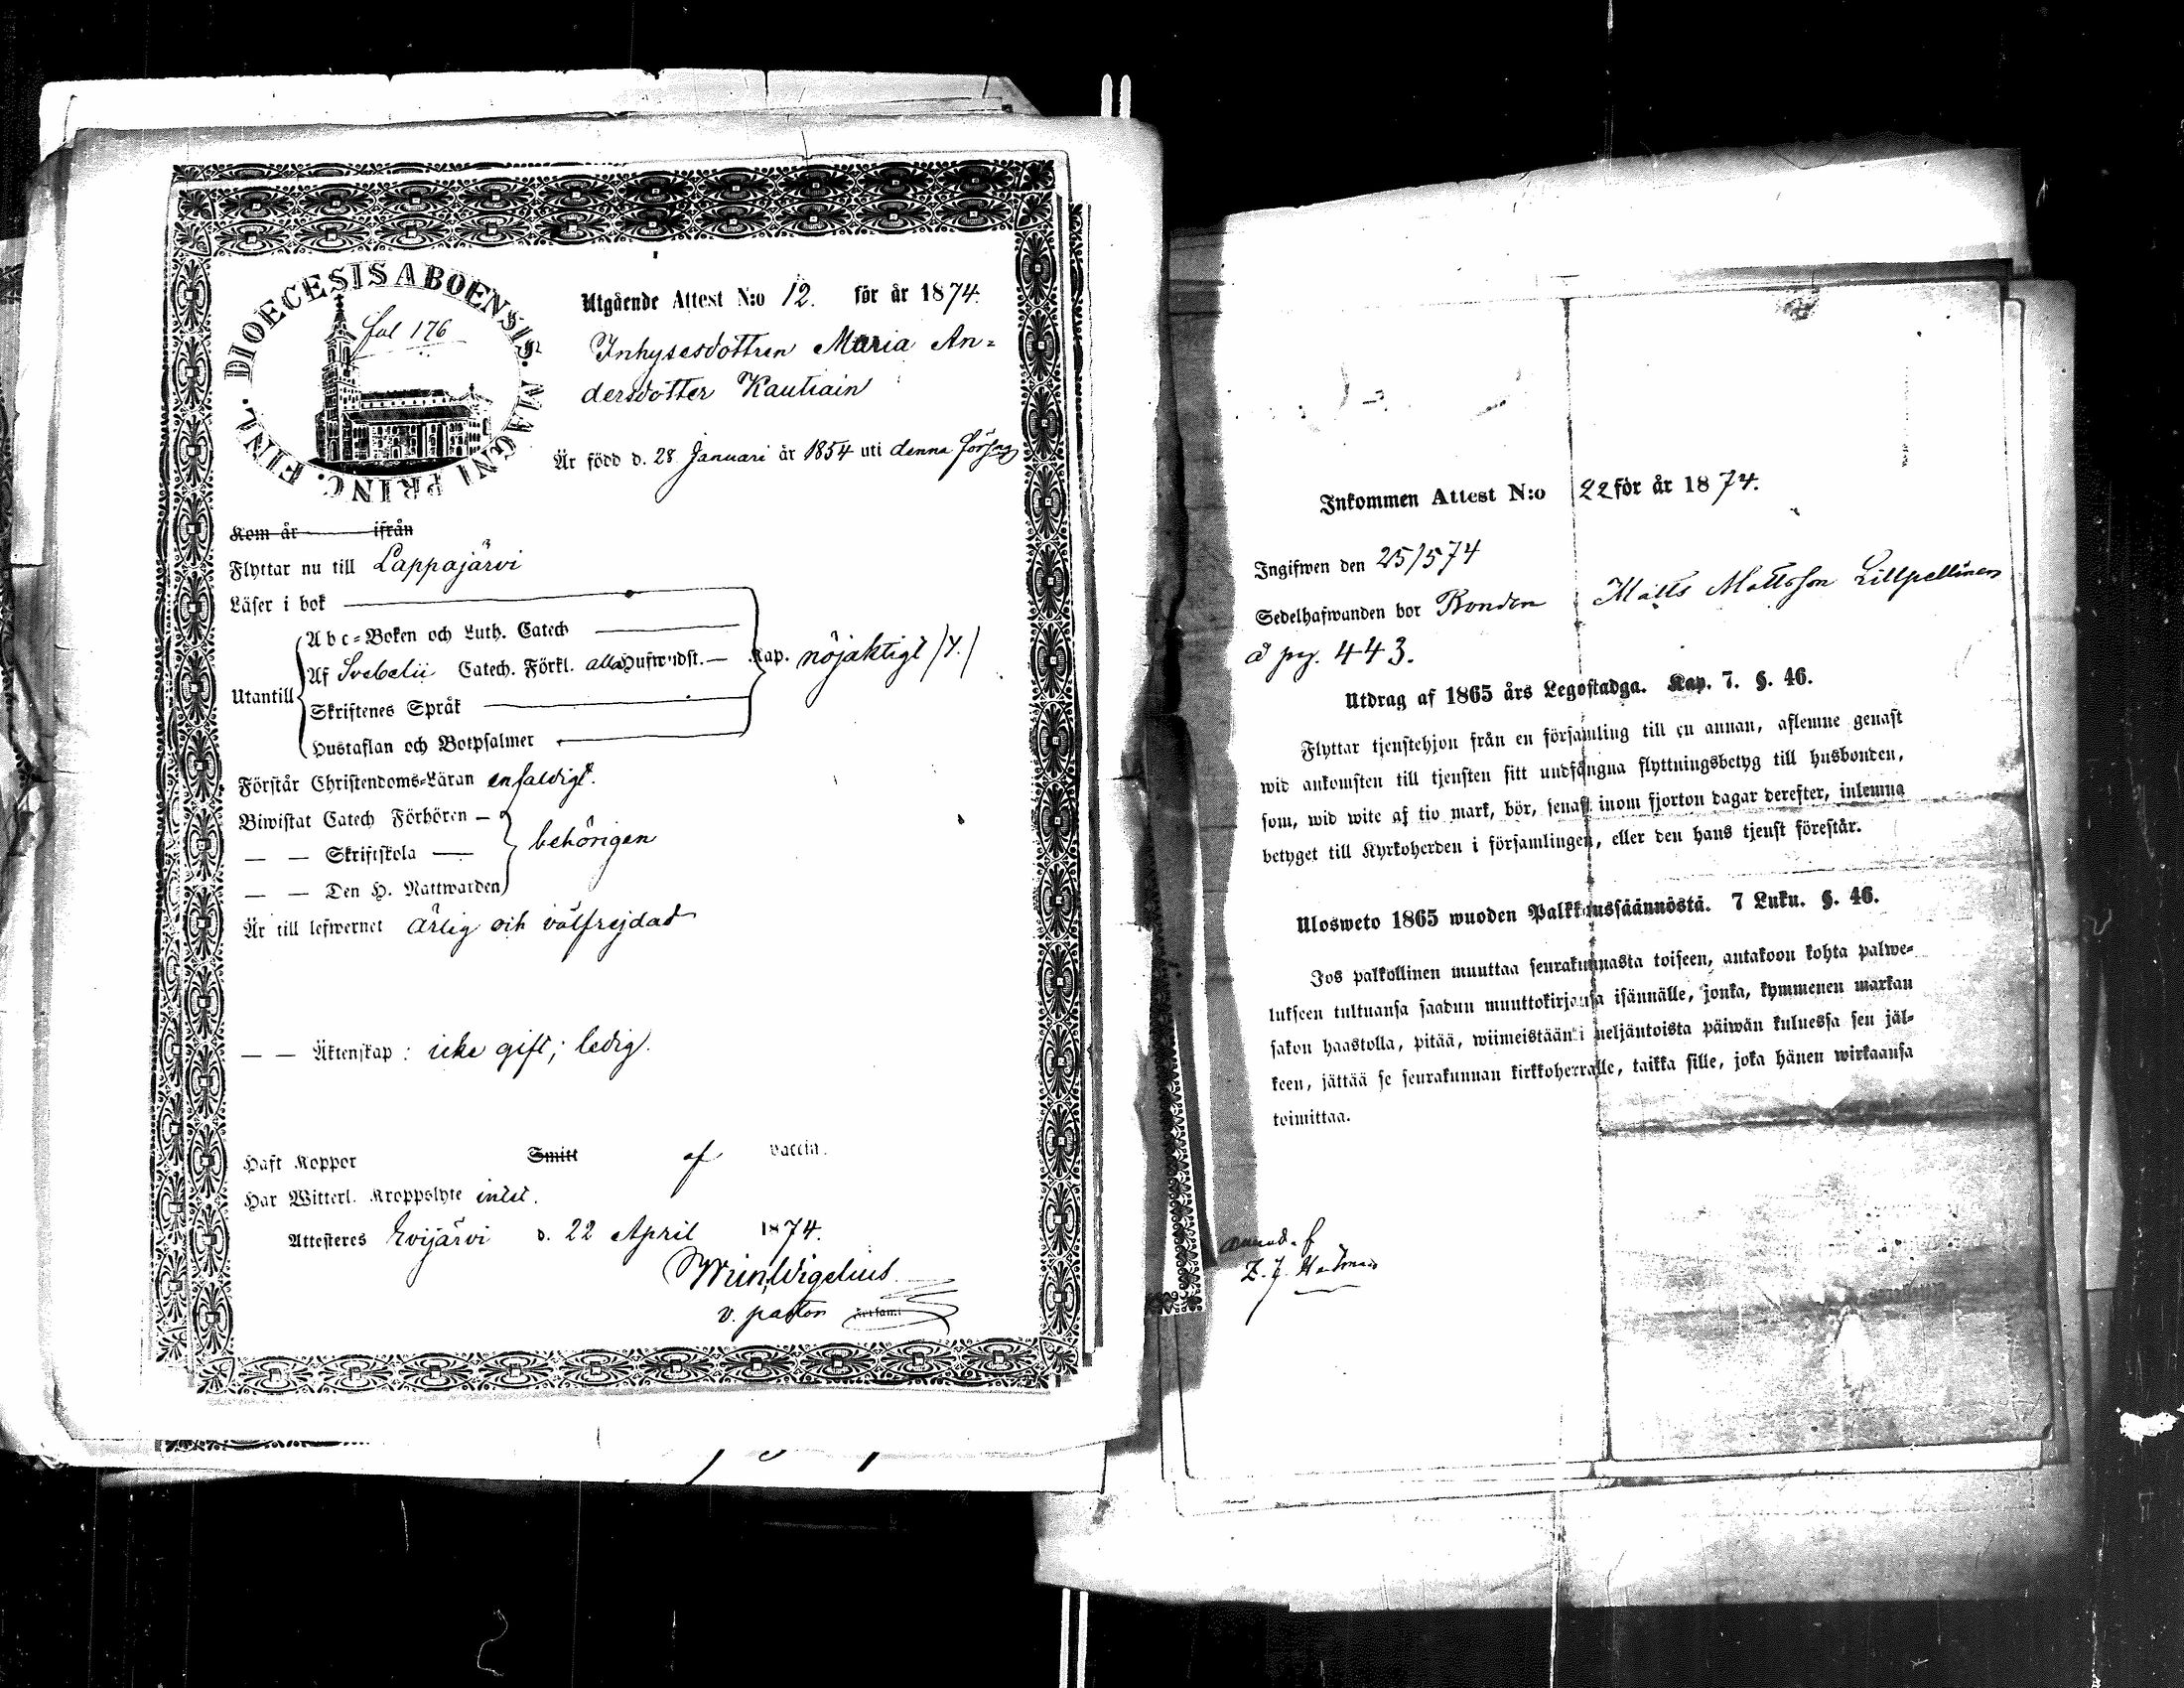 DIOECESIS ABOENSIS. MAGNI PRINC. FINL.
fol 176
Utgående Attest N:o 12. för år 1874.
Inhysesdottren Maria An-
dersdotter Kautiain
Är född d. 28 Januari år 1854 uti denna förs
Kom år ifrån
Flyttar nu till Lappajärvi
Läser i bok
Utantill
Abc-Boken och Luth. Catech
Af Svebelii Catech. Förkl. alla Hufwudst. — Kap. nöjaktigt /Y./
Skriftenes Språk
Hustaflan och Botpsalmer
Förstår Christendoms-Läran enfaldigt.
Biwistat Catech Förhören —
— — Skriftskola — behörigen
— — Den H. Nattwarden
Är till lefwernet ärlig och välfrejdad
— — Äktenskap: icke gift; ledig.
Haft Koppor Smitt af vaccin.
Har Witterl. Kroppslyte intet.
Attesteres Evijärvi d. 22 April 1874.
v. pastor
Inkommen Attest N:o 22 för år 1874.
Ingifwen den 25/5 74
Sedelhafwanden bor Bonden Matts Mattsson Lillpellinen
å pag. 443.
Utdrag af 1865 års Legostadga. Kap. 7. §. 46.
Flyttar tjenstehjon från en församling till en annan, aflemne genast
wid ankomsten till tjensten sitt undfångna flyttningsbetyg till husbonden,
som, wid wite af tio mark, bör, senast inom fjorton dagar derefter, inlemna
betyget till Kyrkoherden i församlingen, eller den hans tjenst förestår.
Ulosweto 1865 wuoden Palkkaussäännöstä. 7 Luku. §. 46.
Jos palkollinen muuttaa seurakunnasta toiseen, antakoon kohta palwe-
lukseen tultuansa saadun muuttokirjansa isännälle, jonka, kymmenen markan
sakon haastolla, pitää, wiimeistäänki neljäntoista päiwän kuluessa sen jäl-
keen, jättää se seurakunnan kirkkoherralle, taikka sille, joka hänen wirkaansa
toimittaa.